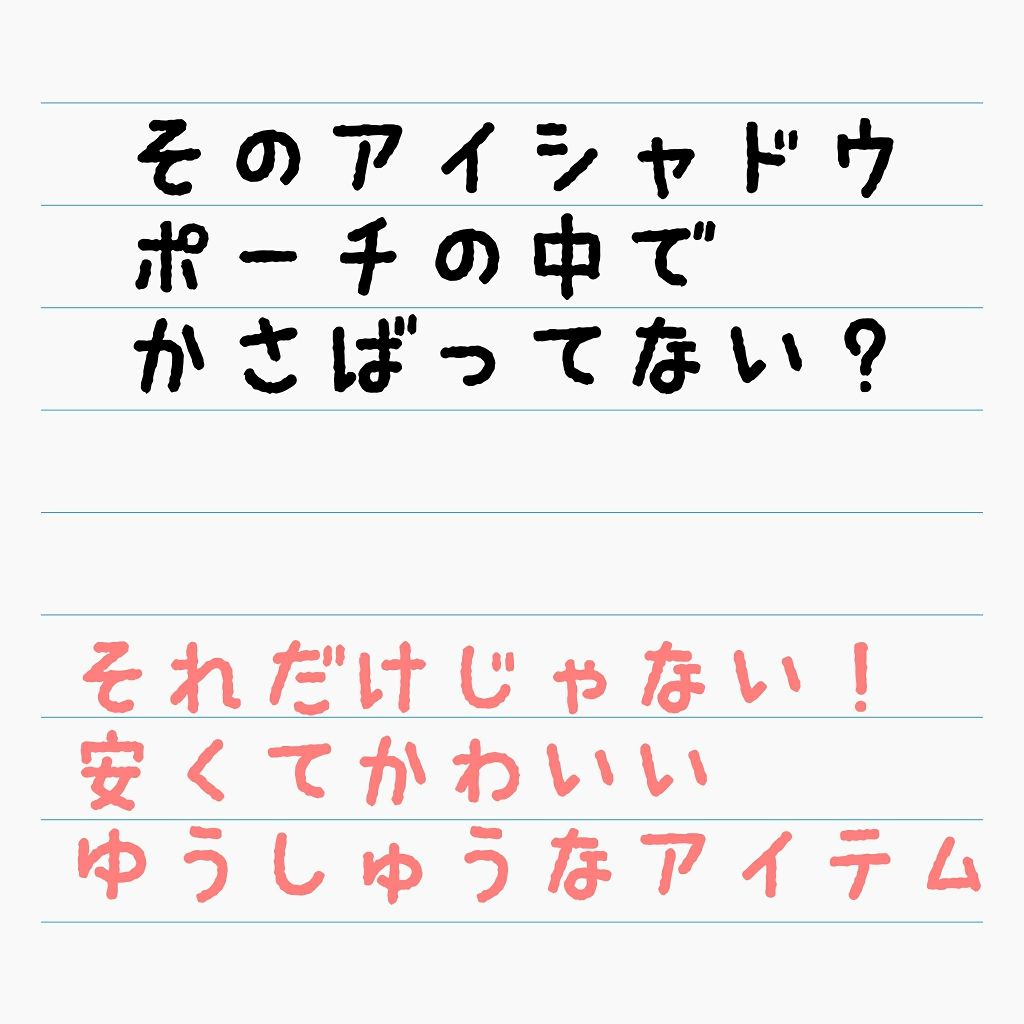 そのアイシャドウ
ポーチの中で
かさばってない？
それだけじゃない！
安くてかわいい
ゆうしゅうなアイテム